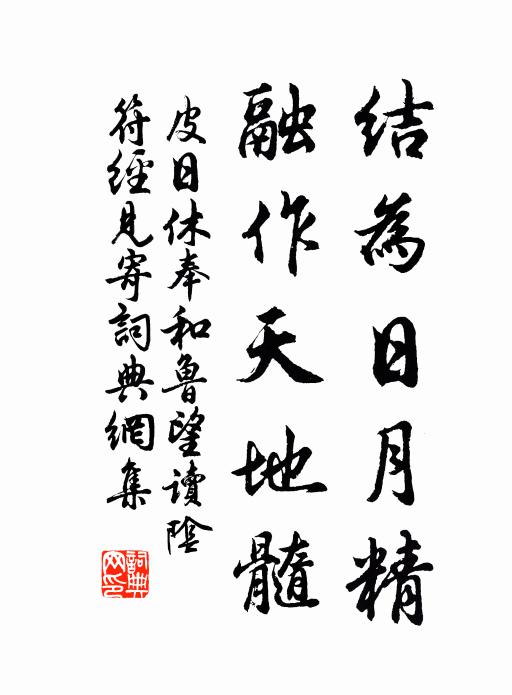 結為日月精
融作天地髓
皮日休奉和魯望讀陰
符經見寄詞典網集
詞典
网印